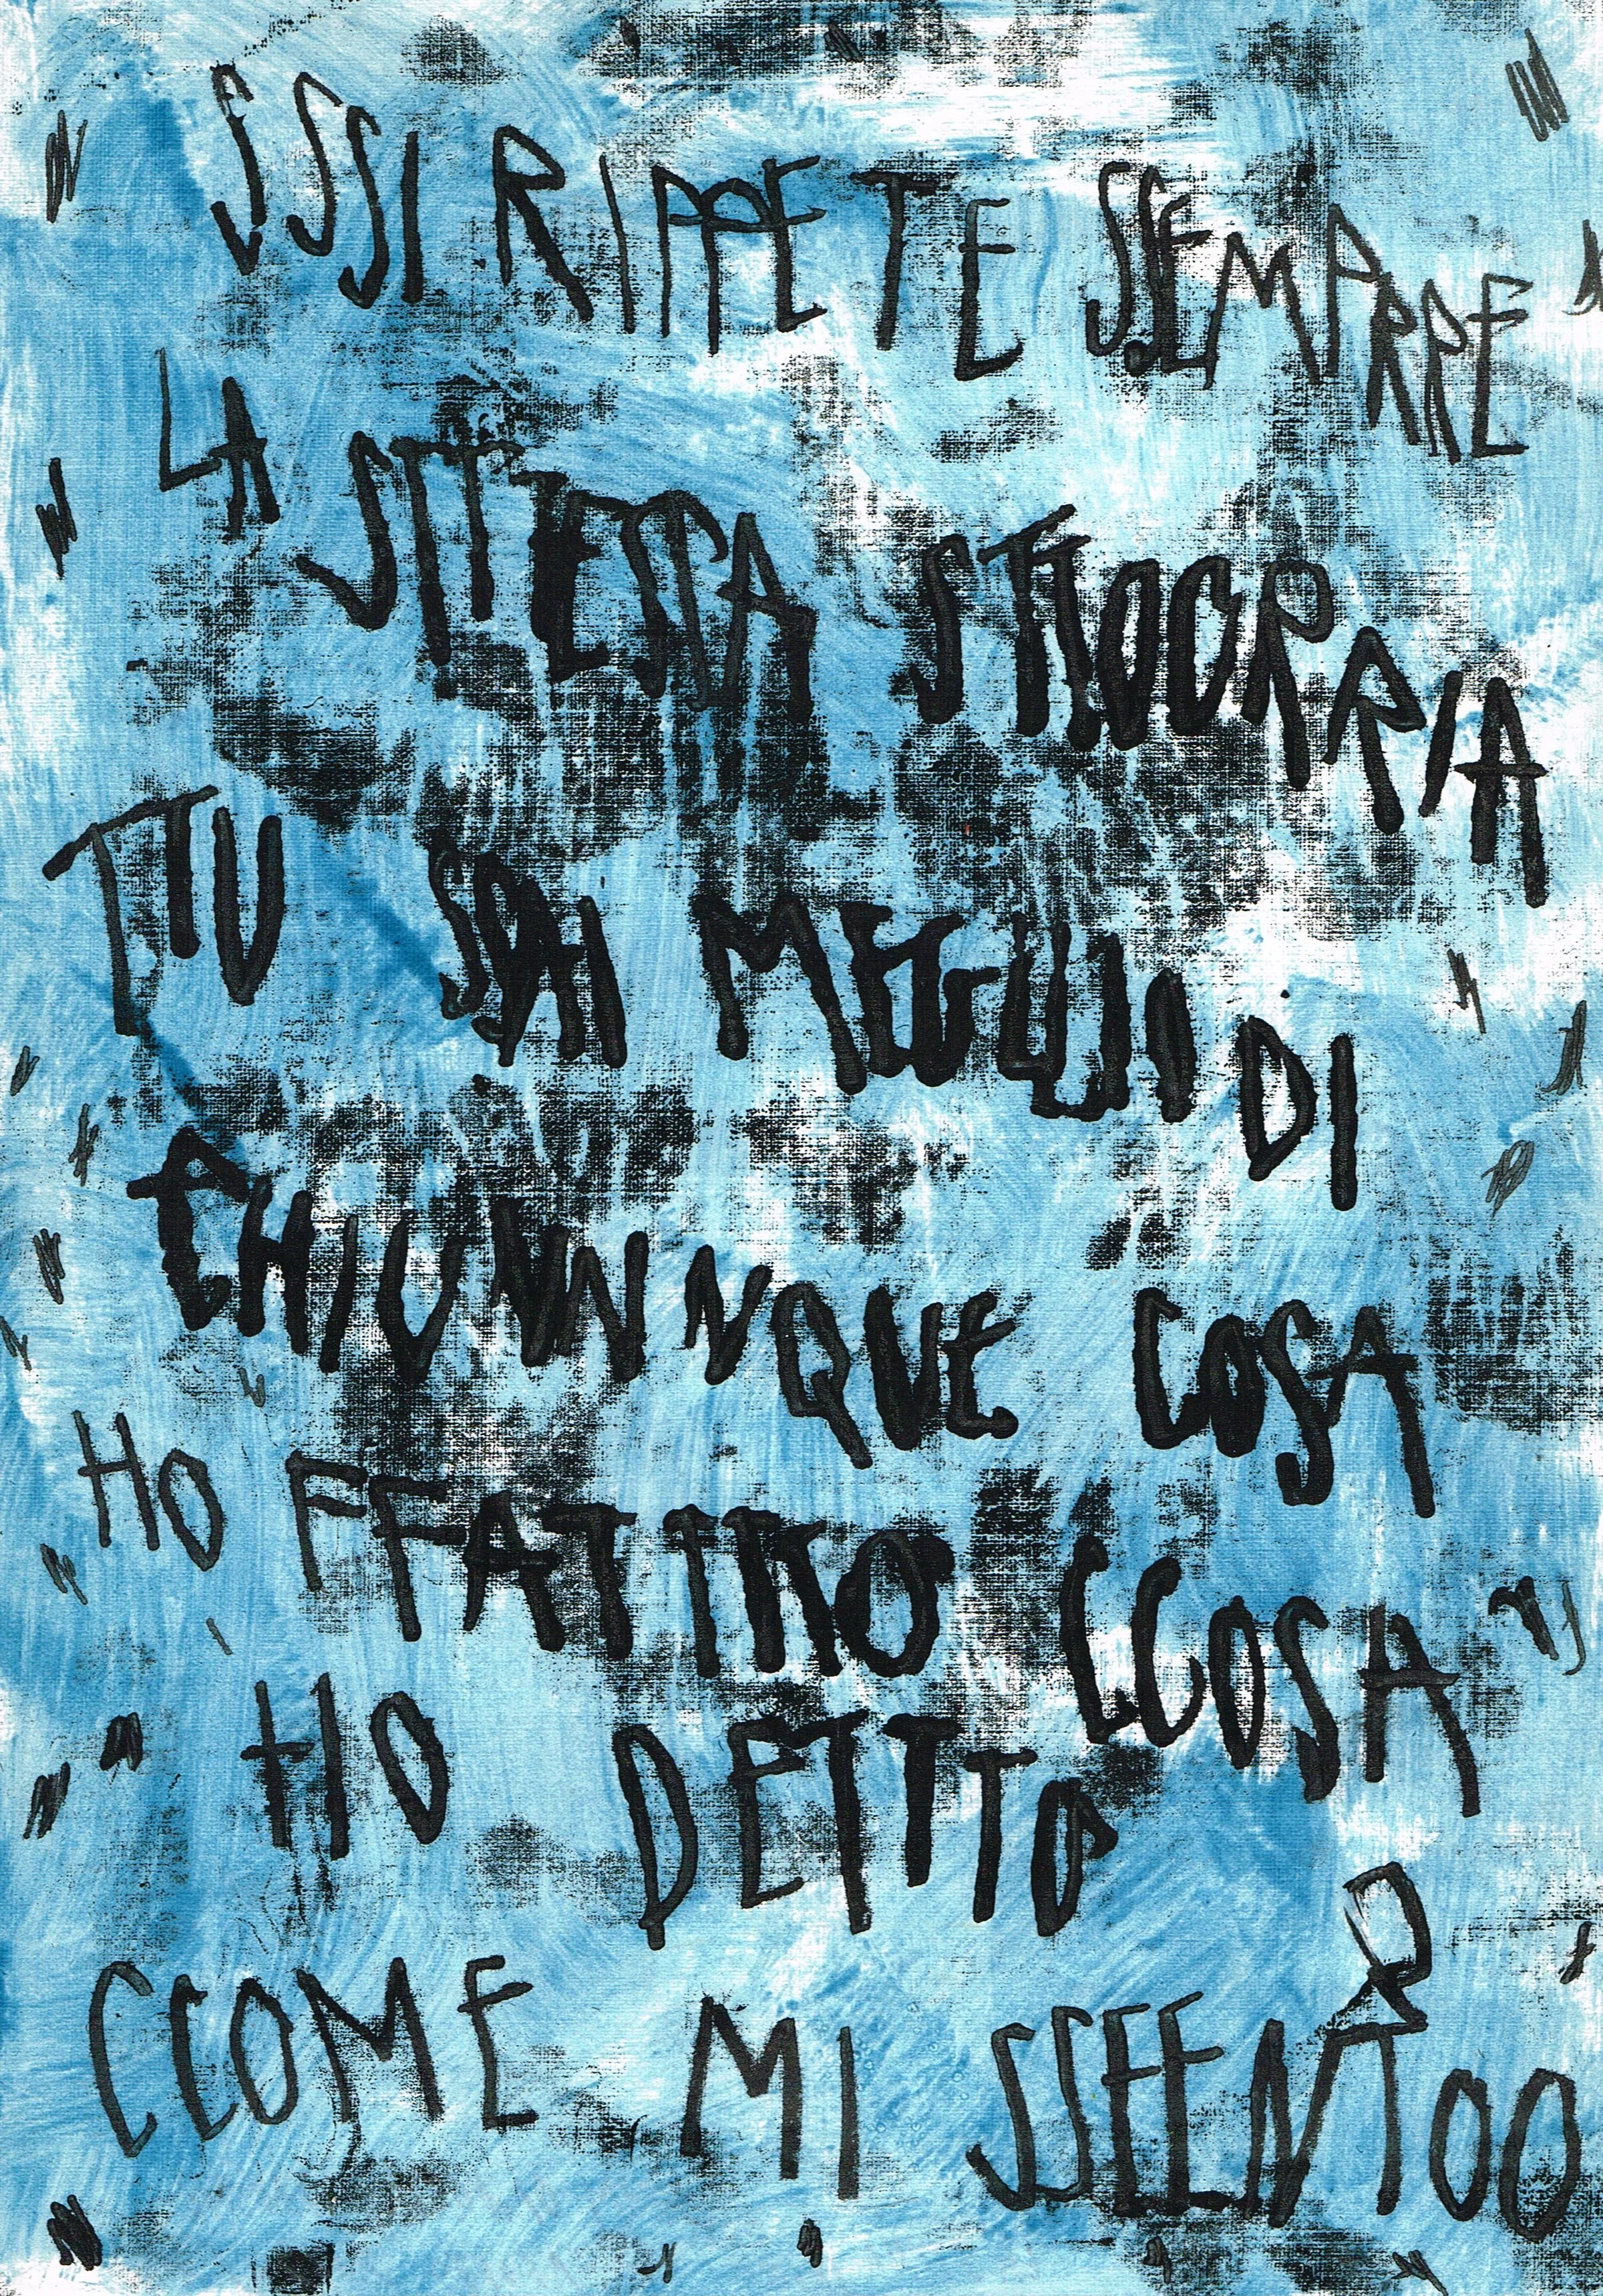 SSSI RIPPETE SSEMPRRE
LA STTESSA STTOORRIA
TTU SAI MEGLIO DI
CHIUNNNQUE COSA
HO FFATTTO CCOSA"
"HO DETTTO
CCOME MI SSEENTOO